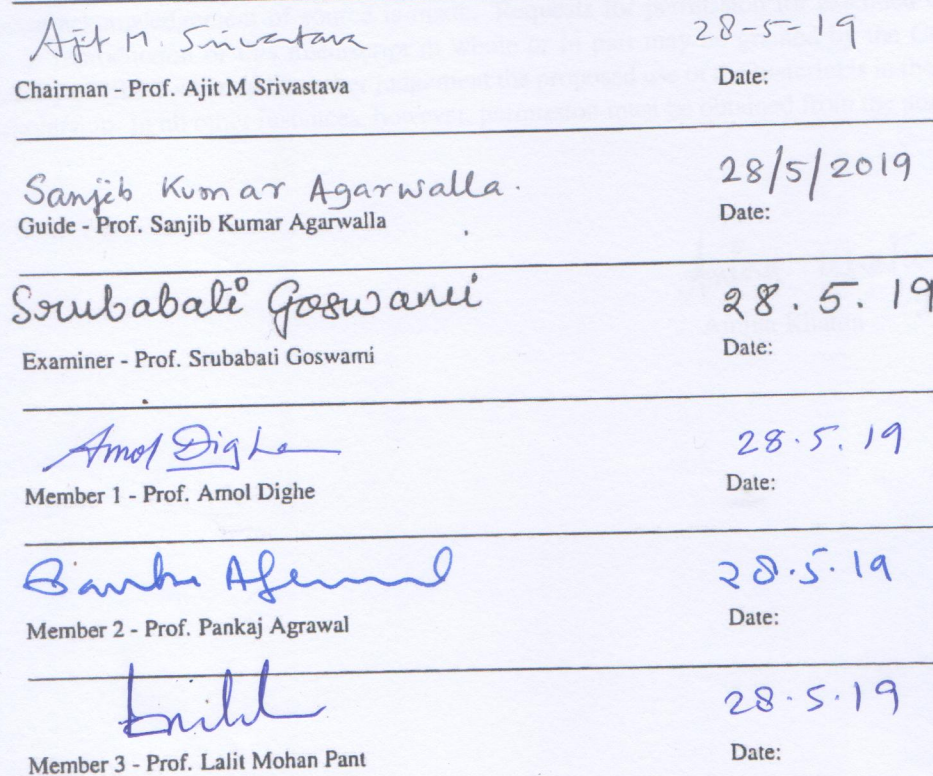 Ajit M Srivastava 28-5-19
Chairman - Prof. Ajit M Srivastava Date:
Sanjib Kumar Agarwalla. 28/5/2019
Guide - Prof. Sanjib Kumar Agarwalla Date:
Srubabati Goswami 28.5.19
Examiner - Prof. Srubabati Goswami Date:
Amol Dighe 28.5.19
Member 1 - Prof. Amol Dighe Date:
28.5.19
Member 2 - Prof. Pankaj Agrawal Date:
28.5.19
Member 3 - Prof. Lalit Mohan Pant Date: